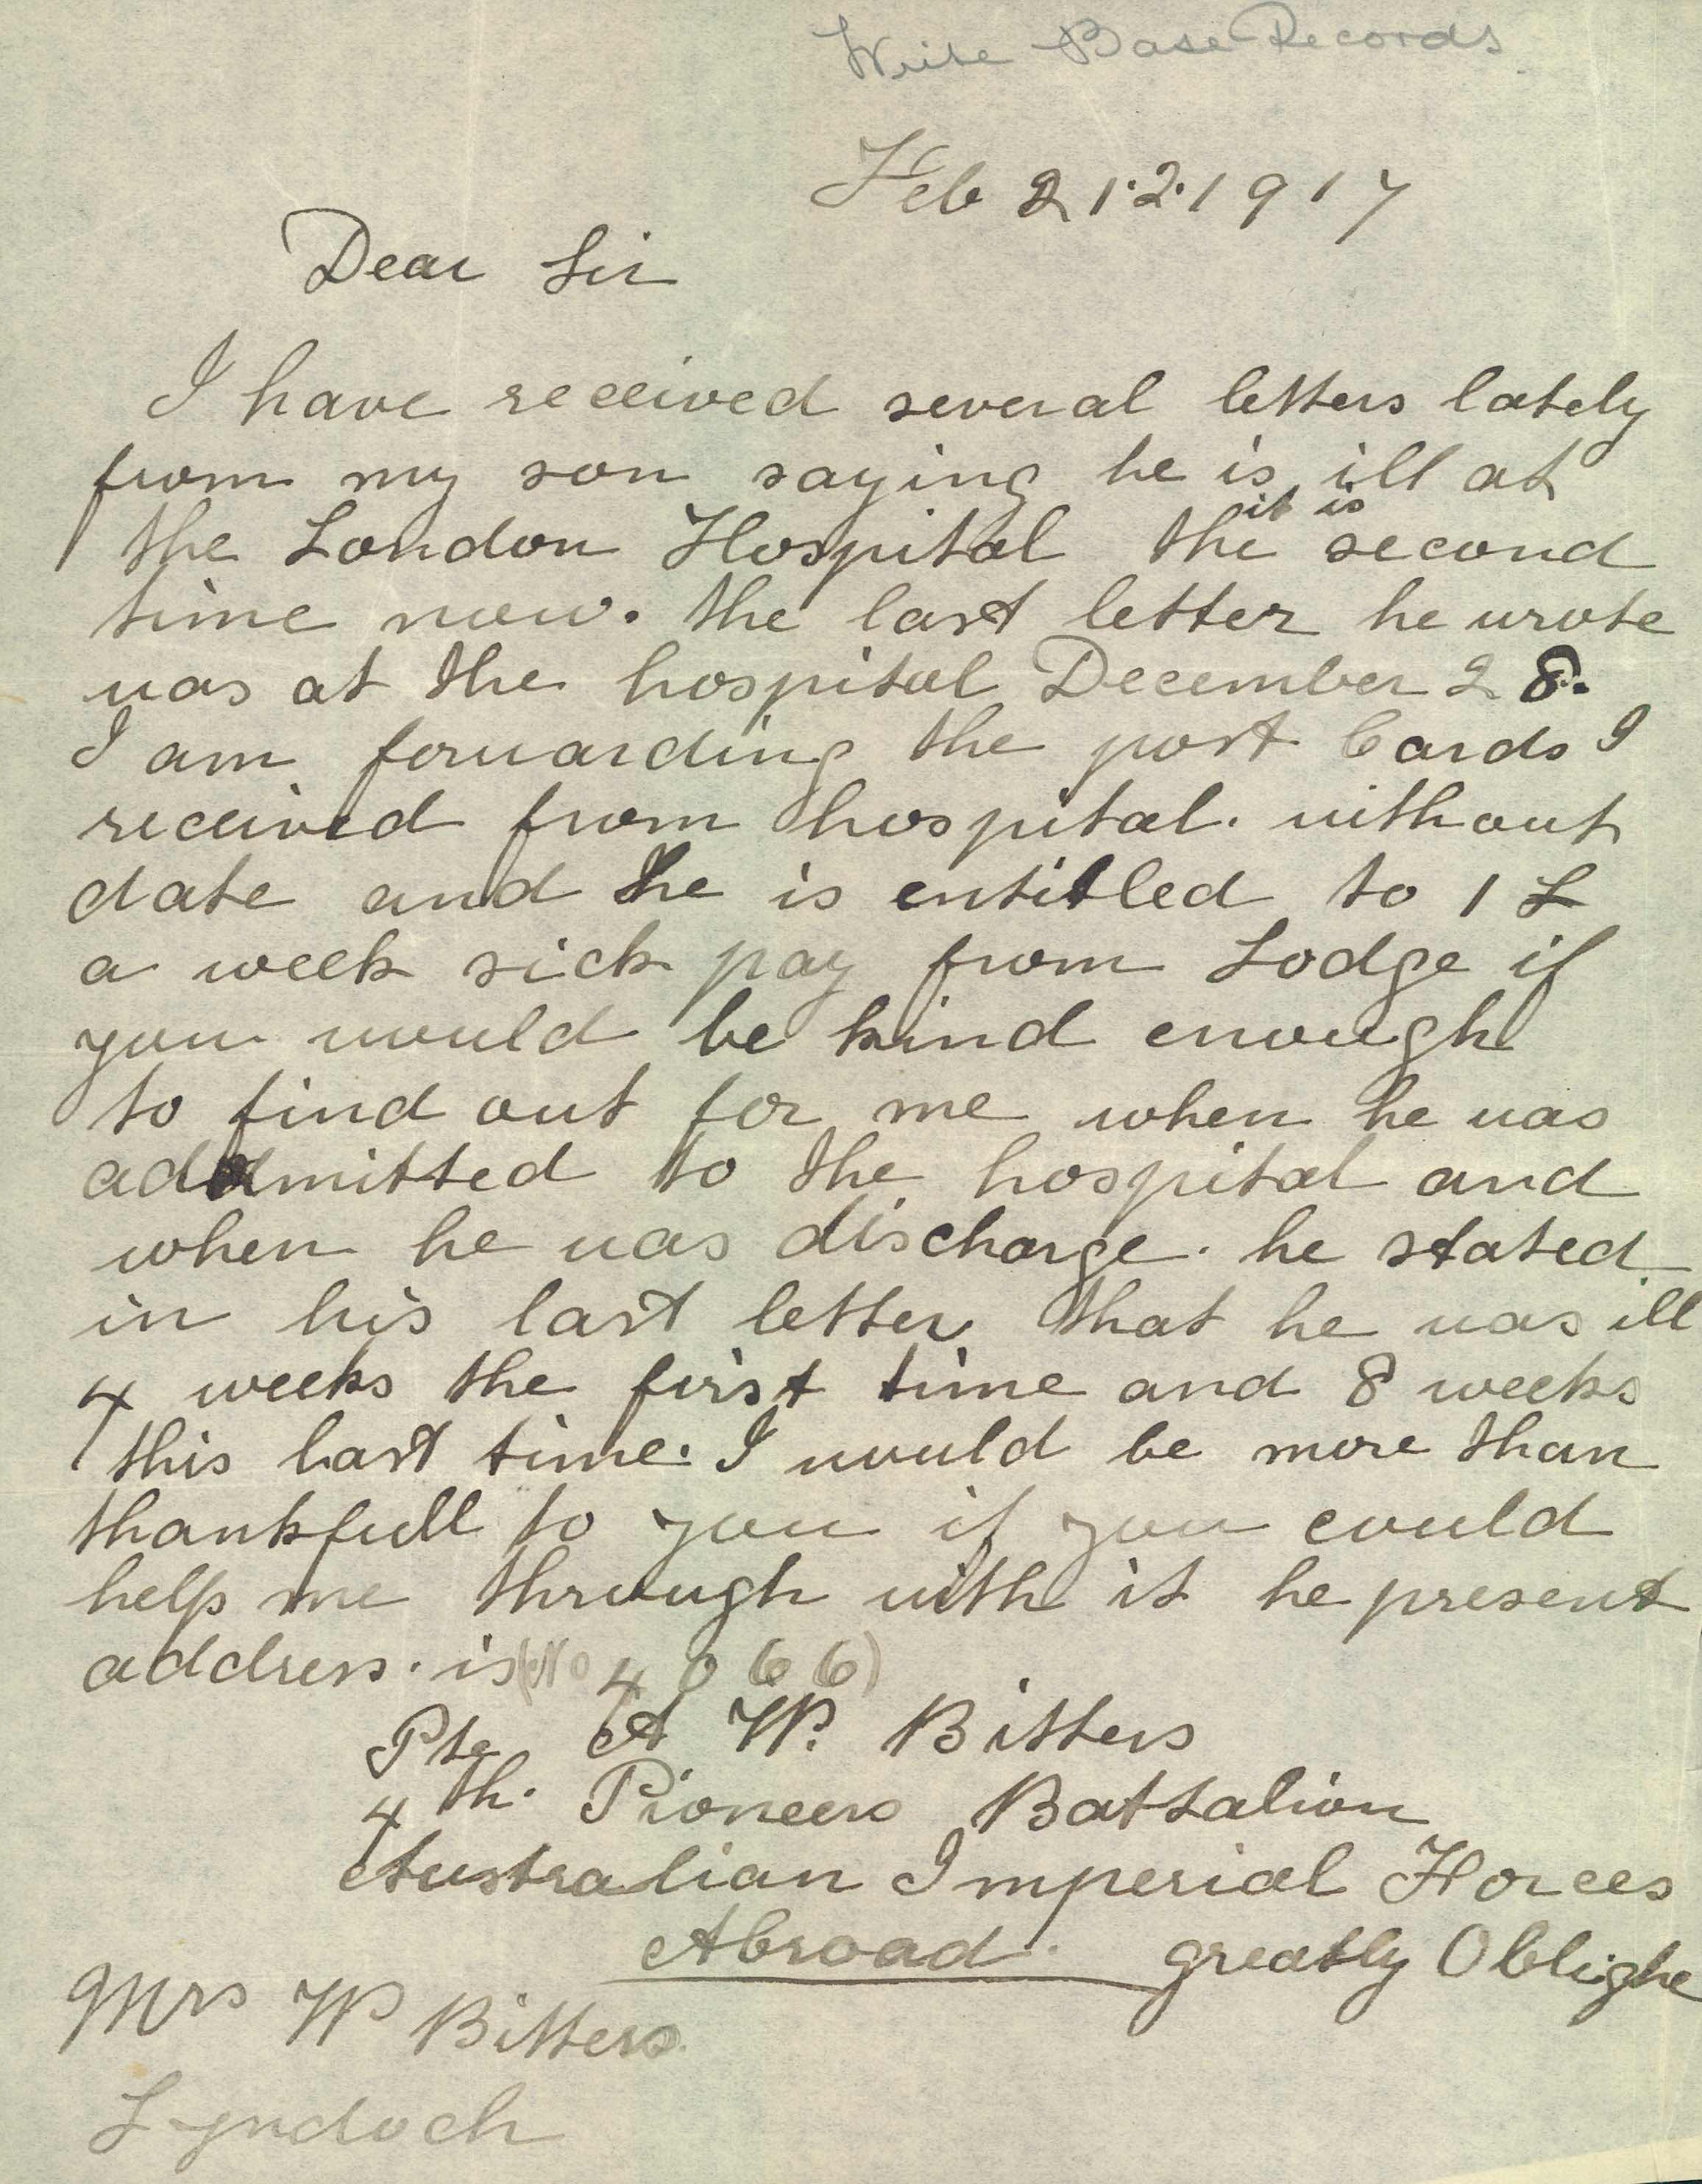 Write Base Records
Feb 21.2.1917
Dear Sir
I have received several letters lately
from my son saying he is ill at
the London Hospital the it is second
time now. the last letter he wrote
was at the hospital December 28.
I am forwarding the post Cards I
received from hospital. without
date and he is entitled to 1 £
a week sick pay from Lodge if
you would be kind enough
to find out for me when he was
addmitted to the hospital and
when he was discharge. he stated
in his last letter that he was ill
4 weeks the first time and 8 weeks
this last time. I would be more than
thankfull to you if you could
help me through with it he present
address. is (No 4066)
Pte A W. Bitters
4th. Pioneers Battalion
Australian Imperial Forces
Abroad. greatly Oblighe
Mrs W Bitters
Lyndoch